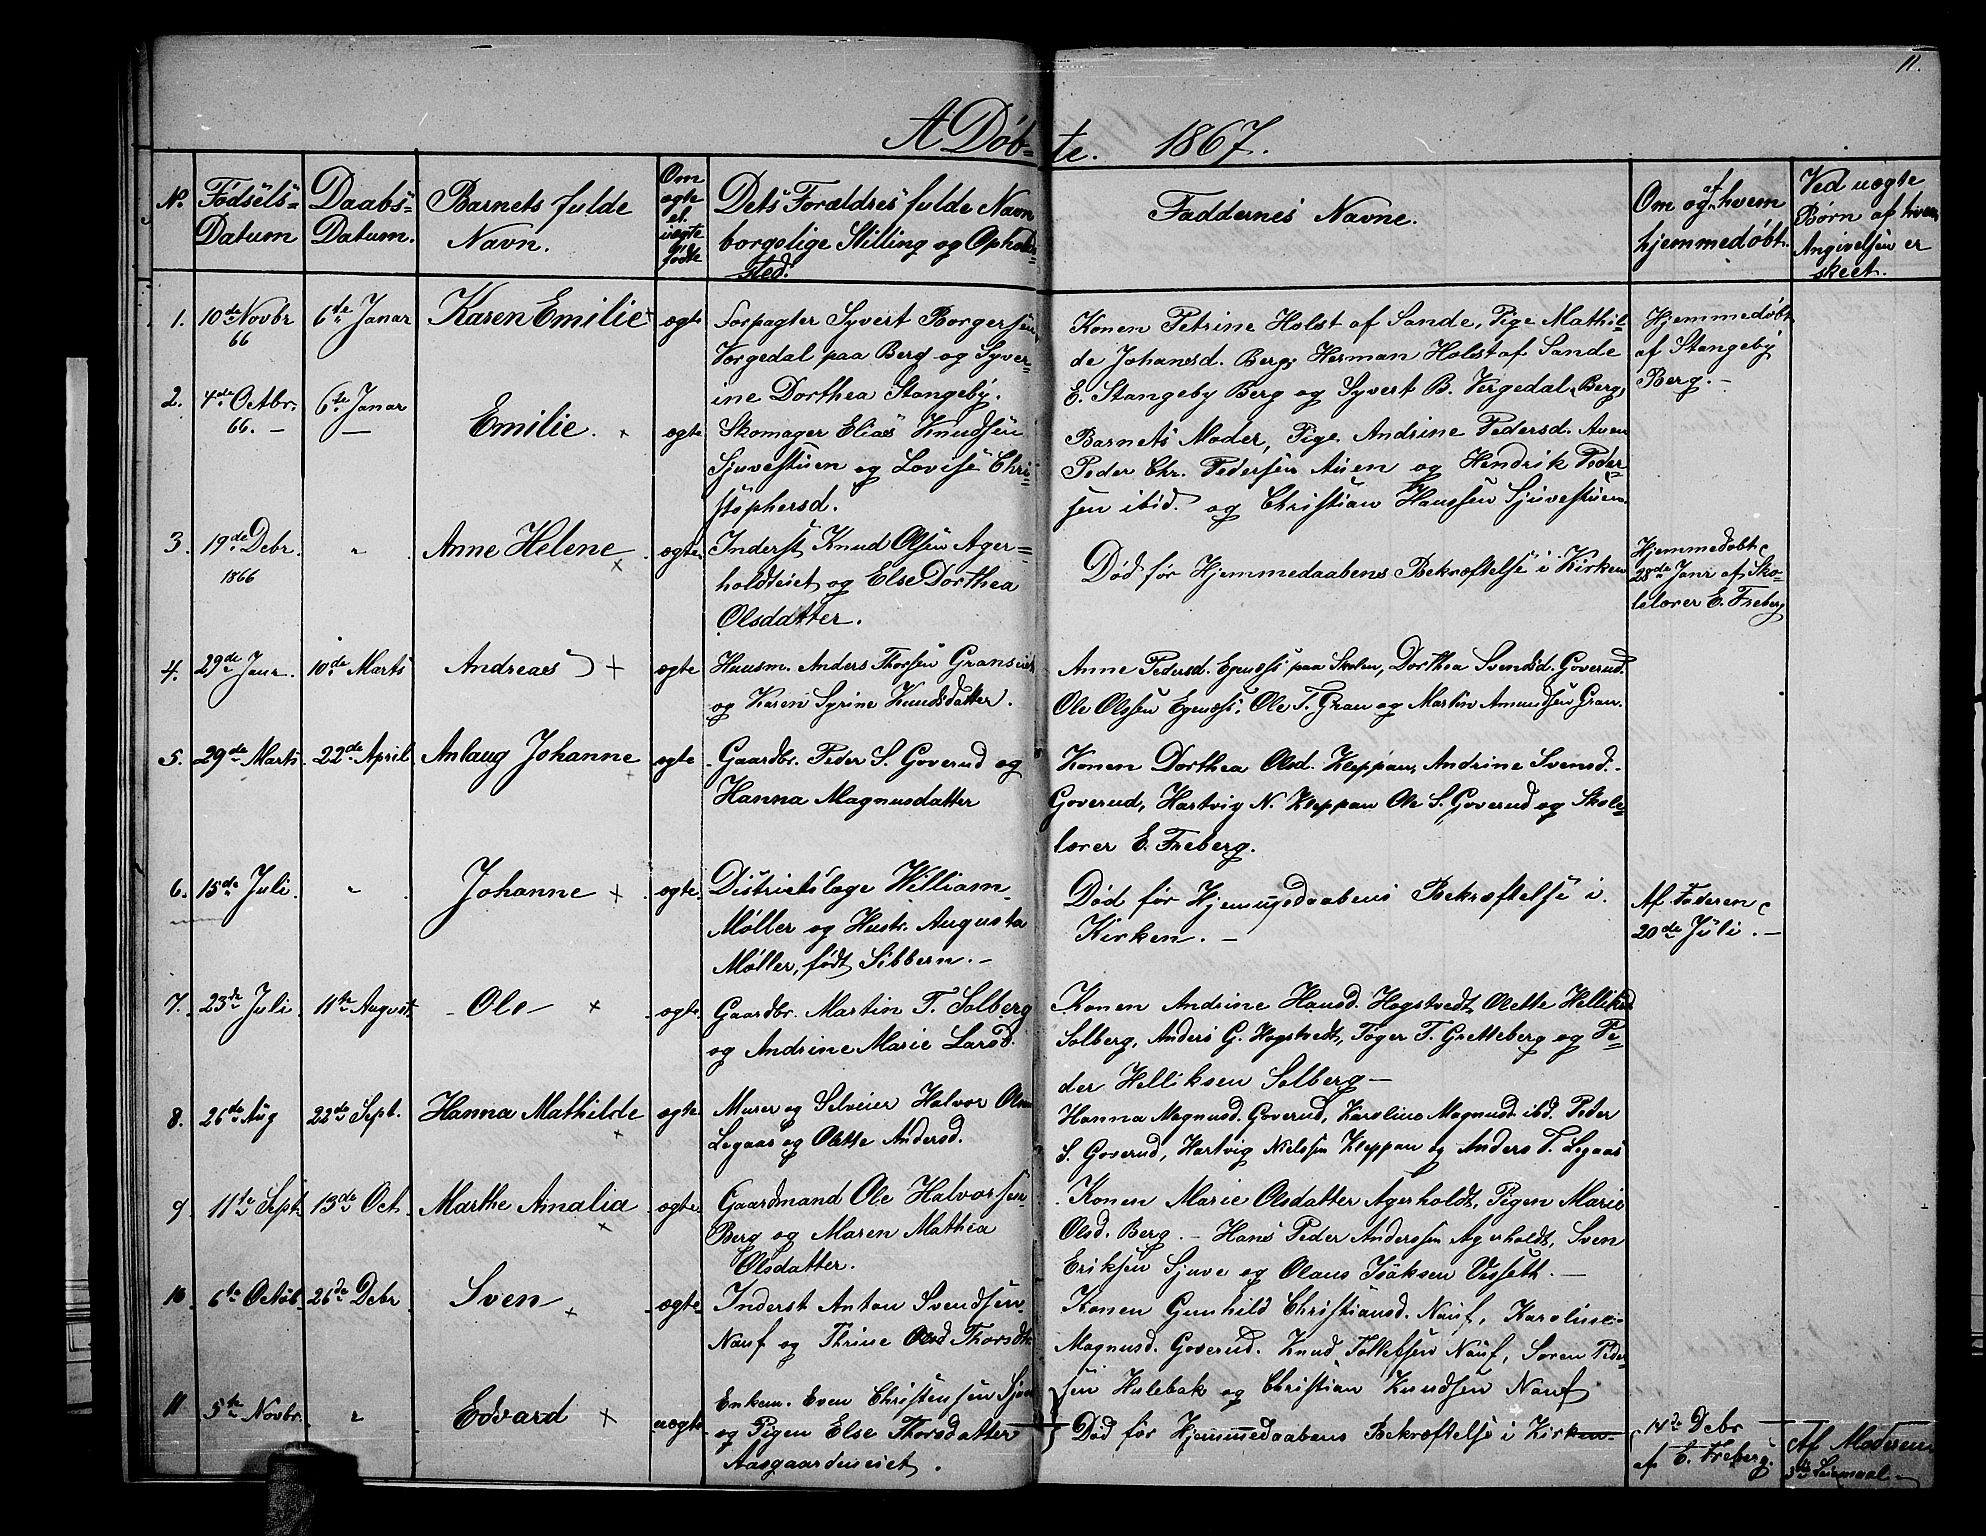 11.
A Døb- te. 1867.
No. Fødsels- Datum
Daabs- Datum.
Barnets fulde Navn.
Om ægte el. uægte født
Dets Forældres fulde Navn borgelige Stilling og Opholds- sted.
Faddernes Navne.
Om og af hvem hjemmedøbt.
Ved uægte Børn af hvem Angivelsen er skeet.
1. 10de Novbr 66 6te Janar Karen Emilie ægte
Forpagter Syvert Borgersen
Vergedal paa Berg og Syver-
ine Dorthea Stangeby.
Konen Petrine Holst af Sande, Pige Mathil-
de Johansd. Berg, Herman Holst af Sande
E. Stangeby Berg og Syvert B. Vergedal, Berg,
Hjemmedøbt
af Stangeby
Berg. -
2. 4de Octbr. 66. - 6te Janar Emilie. ægte
Skomager Elias Knudsen
Sjuvestuen og Lovise Chri-
stophersd.
Barnets Moder, Pige Andrine Pedersd. Auen
Peder Chr. Pedersen Auen og Hendrik Peder-
sen ibid. og Christian Hanssen Sjuvestuen.
3. 19de Debr. 1866 " Anne Helene ægte
Inderst Knud Olsen Ager-
holdteiet og Else Dorthea
Olsdatter.
Død før Hjemmedaabens Bekræftelse i Kirken
Hjemmedøbt
28de Janr af Sko-
lelærer E. Freberg
4. 29de Janr. 10de Marts Andreas ægte
Huusm. Anders Thorsen Graneiet
og Karen Syrine Knudsdatter.
Anne Pedersd. Egenæss paa Skolen, Dorthea Svendsd. Goverud.
Ole Olssen Egenæss, Ole T. Gran og Martin Amundsen Gran.
5. 29de Marts 22de April Anlaug Johanne ægte
Gaardbr. Peder S. Goverud og
Hanna Magnusdatter
Konen Dorthea Olsd. Kleppan, Andrine Svensd.
Goverud, Hartvig N. Kleppan Ole S. Goverud og Skole-
lærer E. Freberg.
6. 15de Juli. " Johanne ægte
Districtslæge William
Møller og Hustr. Augusta
Møller, født Sibbern. -
Død før Hjemmedaabens Bekræftelse i
Kirken. -
Af Faderen
20de Juli. -
7. 23de Juli 11te August Ole ægte
Gaardbr. Martin T. Solberg
og Andrine Marie Larsd.
Konen Andrine Hansd. Hogstvedt, Olette Helliksd
Solberg, Anders G. Hogstvedt, Toger T. Gretteberg og Pe-
der Helliksen Solberg -
8. 26de Aug 22de Sept. Hanna Mathilde ægte
Murer og Selveier Halvor Olsen
Legaas og Olette Andersd.
Hanna Magnusd. Goverud, Karoline Magnusd. ibd. Peder
S. Goverud, Hartvig Nielssen Kleppan og Anders T. Legaas
9. 11te Sept. 13de Oct. Marthe Amalia ægte
Gaardmand Ole Halvorsen
Berg og Maren Mathea
Olsdatter.
Konen Marie Olsdatter Agerholdt, Pigen Marie
Olsd. Berg. - Hans Peder Anderssen Agerholdt, Sven
Eriksen Sjuve og Olaus Isaksen Vesseth. -
10. 6te Octob. 26de Debr Sven ægte
Inderst Anton Svendsen
Nauf og Thrine Olsd Thorsdtr
Konen Gunhild Christiansd. Nauf, Karoline
Magnusd. Goverud. Knud Tollefsen Nauf, Soren Peder-
sen Hulebak og Christian Knudsen Nauf
11 5te Novbr. " Edvard uægte
Enkem. Even Christensen Sjuve
og Pigen Else Thorsdatter
Aasgaardeneiet.
Død før Hjemmedaabens Bekræftelse i Kirken
14de Debr
af E. Freberg.
Af Moderen
3die Leiermaal